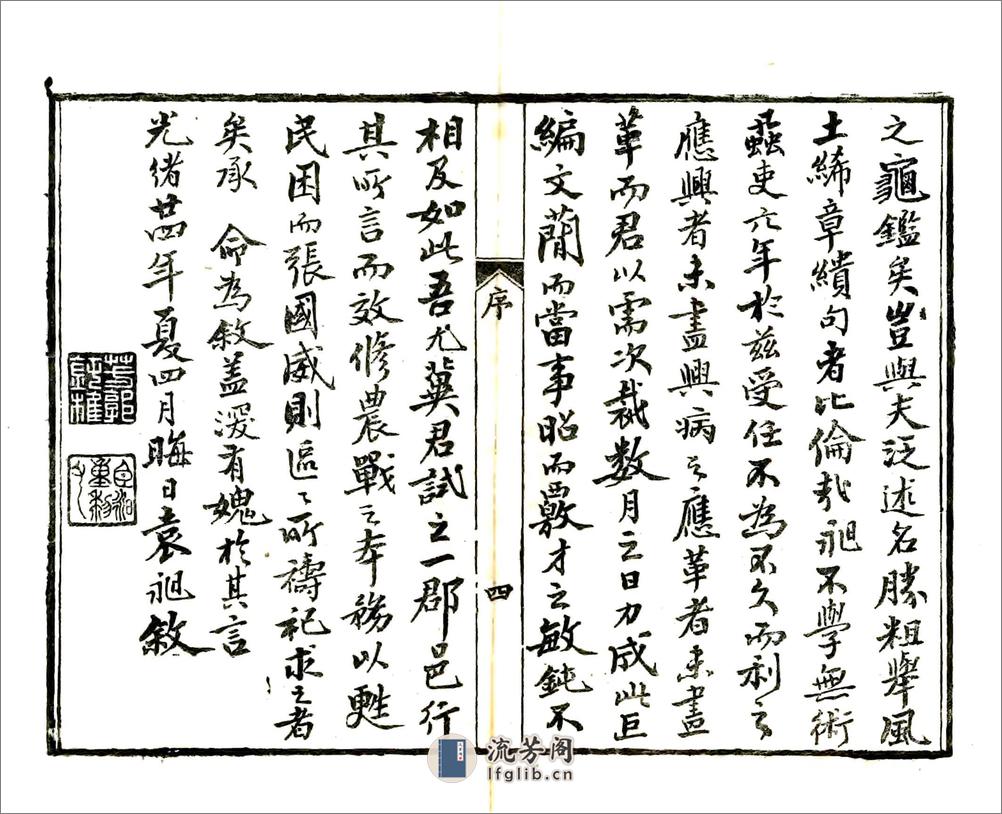 之龜鑑矣豈與夫泛述名勝粗舉風
土絺章繢句者比倫哉昶不學無術
蟲吏六年於茲受任不為不久而利之
應興者未盡興病之應革者未盡
革而君以需次裁數月之日力成此巨
編文蕳而當事昭而覈才之敏鈍不
序
四
相及如此吾尤冀君試之一郡邑行
其所言而效修農戰之本務以甦
民困而張國威則區〻所禱祀求之者
矣承 命為敘蓋深有媿於其言
光緒廿四年夏四月晦日袁昶敘
流芳阁
lfglib.cn